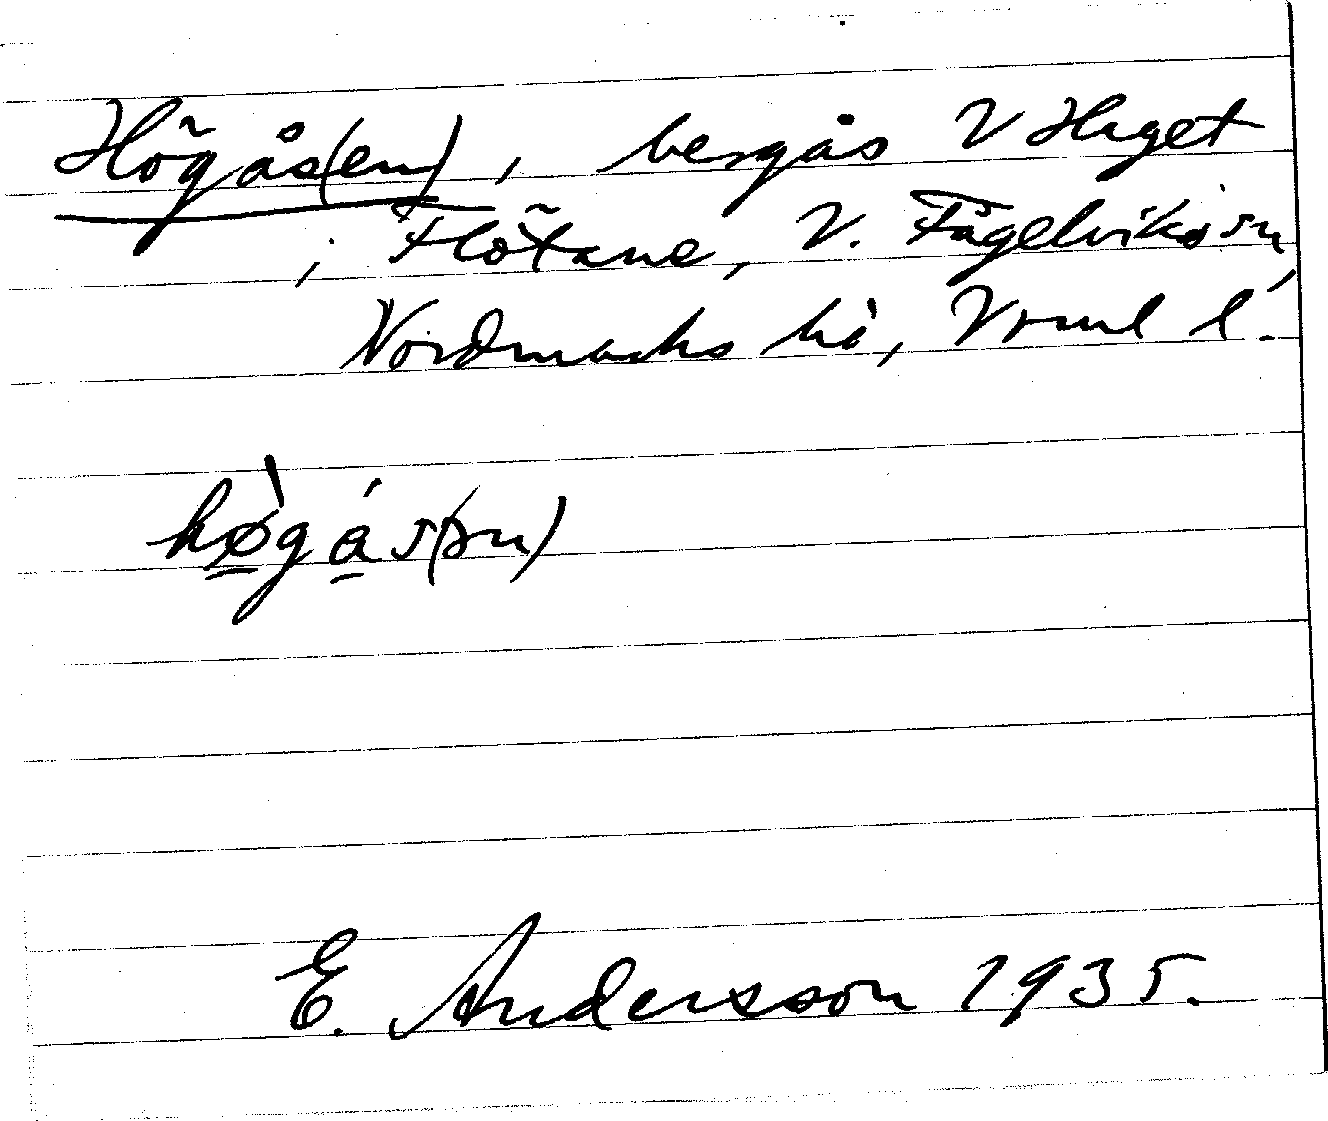 Högås(en), bergås V Höget
i Flötane, V. Fågelviks sn,
Nordmarks hd, Vrml l.
hø̀gás(ən)
E. Andersson 1935.